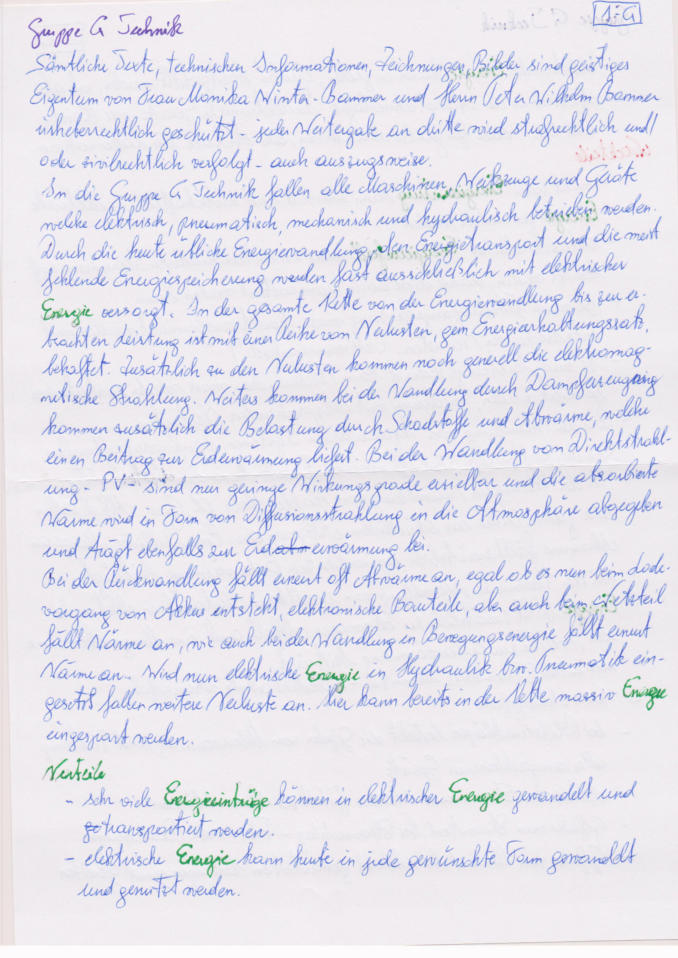 1-G
Gruppe G Technik
Sämtliche Texte, technischen Informationen, Zeichnungen, Bilder sind geistiges
Eigentum von Frau Monika Winter-Bammer und Herrn Peter Wilhelm Bammer
urheberrechtlich geschützt - jeder Weitergabe an dritte wird strafrechtlich und/
oder zivilrechtlich verfolgt - auch auszugsweise.
In die Gruppe G Technik fallen alle Maschinen, Werkzeuge und Geräte
welche elektrisch, pneumatisch, mechanisch und hydraulisch betrieben werden.
Durch die heute übliche Energiewandlung, den Energietransport und die meist
fehlende Energiespeicherung werden fast ausschließlich mit elektrischer
Energie versorgt. In der gesamte Kette von der Energiewandlung bis zur er-
brachten Leistung ist mit einer Reihe von Verlusten, gem Energierhaltungssatz,
behaftet. Zusätzlich zu den Verlusten kommen noch generell die elektromag-
netische Strahlung. Weiters kommen bei der Wandlung durch Dampferzeugung
kommen zusätzlich die Belastung durch Schadstoffe und Abwärme, welche
einen Beitrag zur Erderwärmung liefert. Bei der Wandlung von Direktstrahl-
ung - PV - sind nur geringe Wirkungsgrade erzielbar und die absorbierte
Wärme wird in Form von Diffusionsstrahlung in die Atmosphäre abgegeben
und trägt ebenfalls zur Erderwärmung bei.
Bei der Rückwandlung fällt erneut oft Abwärme an, egal ob es nun beim Lade-
vorgang von Akkus entsteht, elektronische Bauteile, aber auch beim Netzteil
fällt Wärme an, wie auch bei der Wandlung in Bewegungsenergie fällt erneut
Wärme an. Wird nun elektrische Energie in Hydraulik bzw. Pneumatik ein-
gesetzt fallen weitere Verluste an. Hier kann bereits in der Kette massiv Energie
eingespart werden.
Vorteile
- sehr viele Energieeinträge können in elektrischer Energie gewandelt und
transportiert werden.
- elektrische Energie kann heute in jede gewünschte Form gewandelt
und genutzt werden.